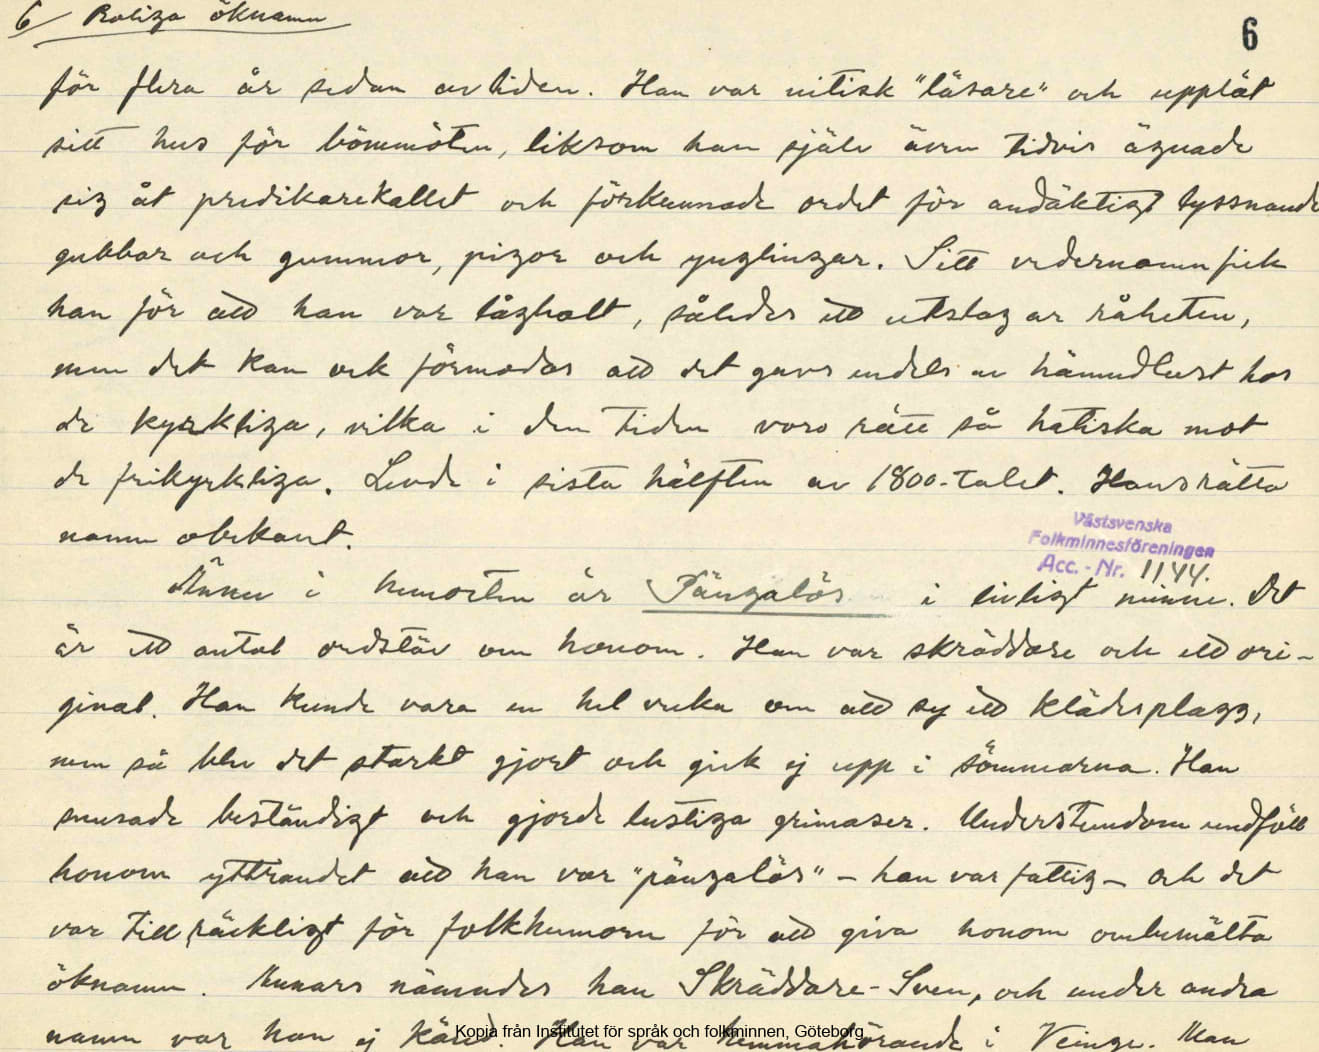 6 Roliga öknamn
6
för flera år sedan avliden. Han var nitisk "läsare" och upplät
sitt hus för bönmöten, liksom han själv även tidvis ägnade
sig åt predikarekallet och förkunnade ordet för andäktigt lyssnande
gubbar och gummor, pigor och ynglingar. Sitt vedernamn fick
han för att han var låghalt, således ett utslag av råheten,
men det kan ock förmodas att det gavs endels av hämndlust hos
de kyrkliga, vilka i den tiden voro rätt så hatiska mot
de frikyrkliga. Levde i sista hälften av 1800-talet. Hans rätta
namn obekant.
Västsvenska
Folkminnesföreningen
Acc. - Nr. 1144.
Ännu i hemorten är Pängalös i livligt minne. Det
är ett antal ordstäv om honom. Han var skräddare och ett ori-
ginal. Han kunde vara en hel vecka om att sy ett klädesplagg,
men så blev det starkt gjort och gick ej upp i sömmarna. Han
snusade beständigt och gjorde lustiga grimaser. Understundom undföll
honom yttrandet att han var "pängalös" - han var fattig - och det
var tillräckligt för folkhumorn för att giva honom ovanbemälta
öknamn. Annars nämndes han Skräddare-Sven, och under andra
namn var han ej känd. Han var hemmahörande i Veinge. Man
Kopia från Institutet för språk och folkminnen, Göteborg